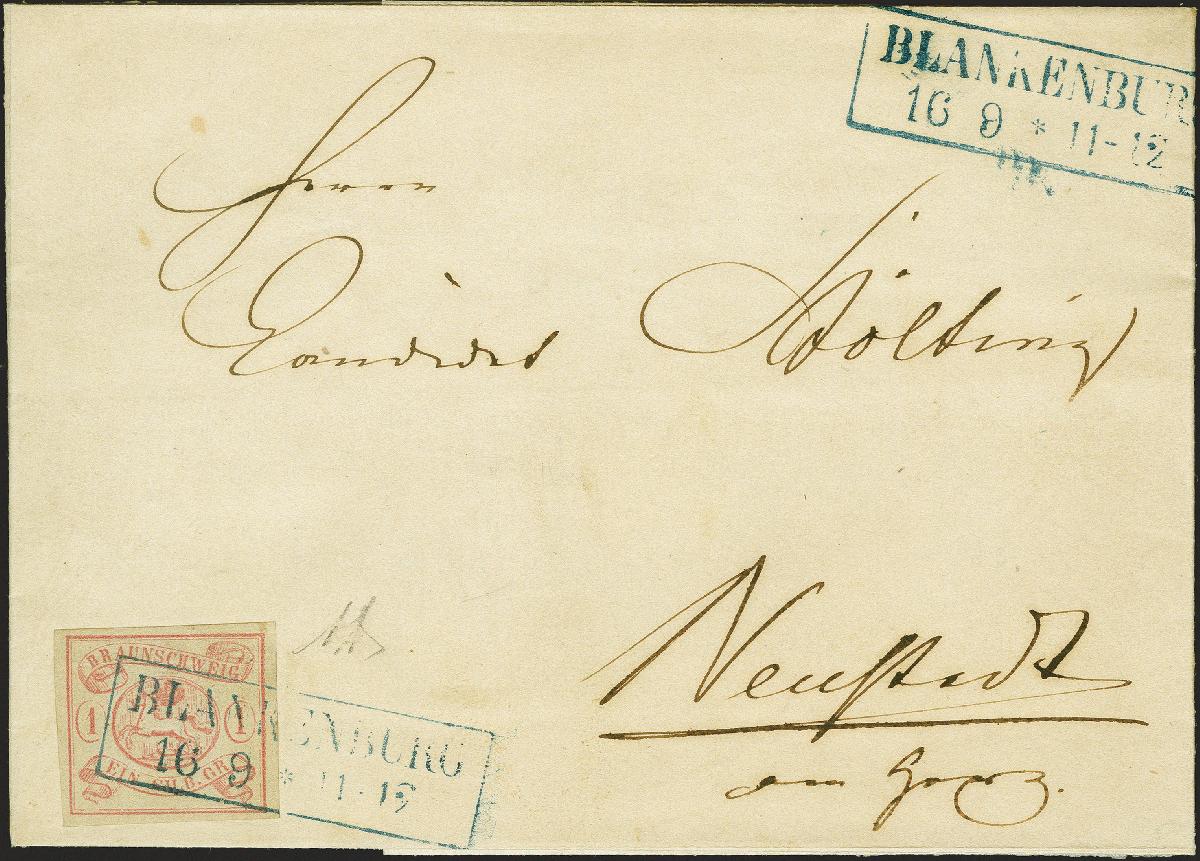 BLANKENBURG
16 9 * 11-12
Herrn
Candidat Stölting
Neustadt
am Harz.
BRAUNSCHWEIG
1 1
EIN SILB. GR.
BLANKENBURG
16 9 * 11-12